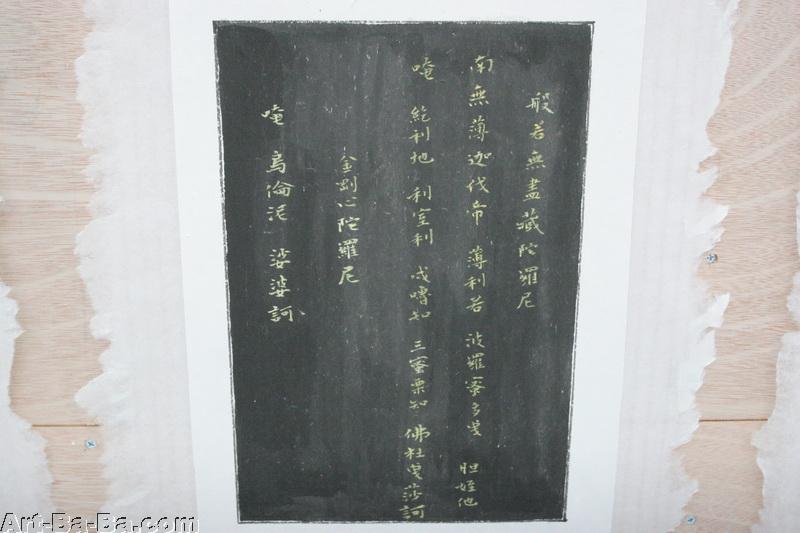 般若無盡藏陀羅尼
南無薄迦伐帝 薄利若 波羅蜜多曳 怛姪他
唵 紇利地 利室利 戍嚕知 三蜜栗知 佛社曳莎訶
金剛心陀羅尼
唵 烏倫泥 娑婆訶
Art-Ba-Ba.com